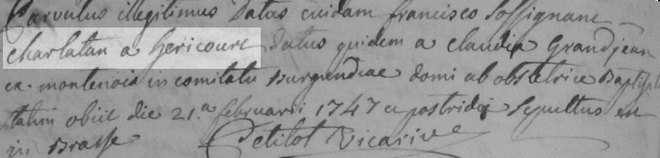 Parvulus illegitimus Datus cuidam francisco Jossignant
charlatan a hericourt datus quidem a claudia Grandjean
ex montenois in comitatu Burgundiae domi ab obstetrice Baptis
tatus obiit die 21.a februarii 1747 et postridie sepultus
in Brasse Petitot Vicarius